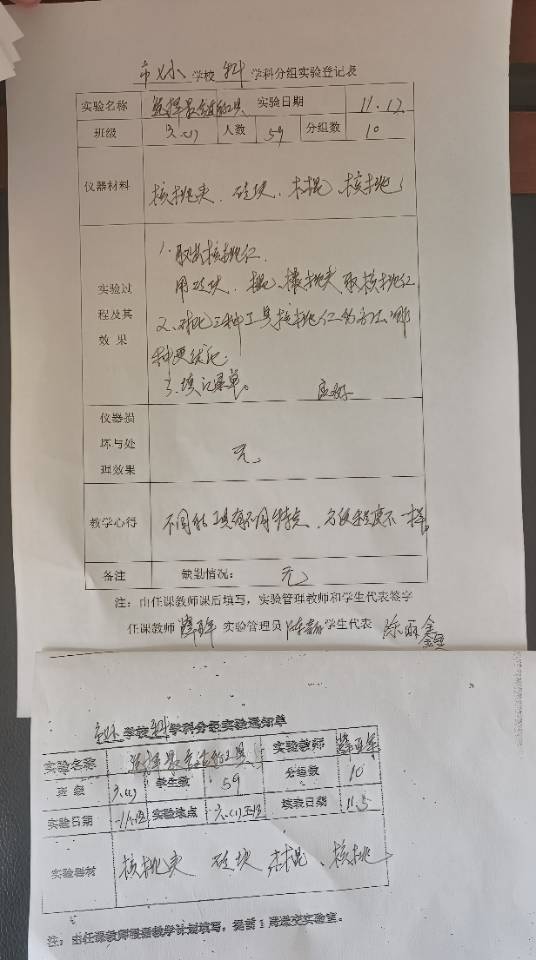 学校 科 学科分组实验登记表
实验名称 选择最合适的工具 实验日期 11.12
班级 六(1) 人数 59 分组数 10
仪器材料 核桃夹、砖块、木棍、核桃
实验过程及其效果
1.取出核桃仁.
用砖块、棍、核桃夹取核桃仁
2.对比三种工具核桃仁的方法哪
种更
3.填记录单。
仪器损坏与处理效果 无
教学心得 不同的工具有不同特点、方便程度不一样。
备注 缺勤情况: 无
注:由任课教师课后填写,实验管理教师和学生代表签字
任课教师 实验管理员 学生代表
学校 科 学科分组实验通知单
实验名称 选择最合适的工具 实验教师
班级 六(1) 学生数 59 分组数 10
实验日期 11.12 实验地点 六(1) 填表日期 11.5
实验器材 核桃夹 砖块 木棍、核桃
注:由任课教师根据教学计划填写,提前1周递交实验室。